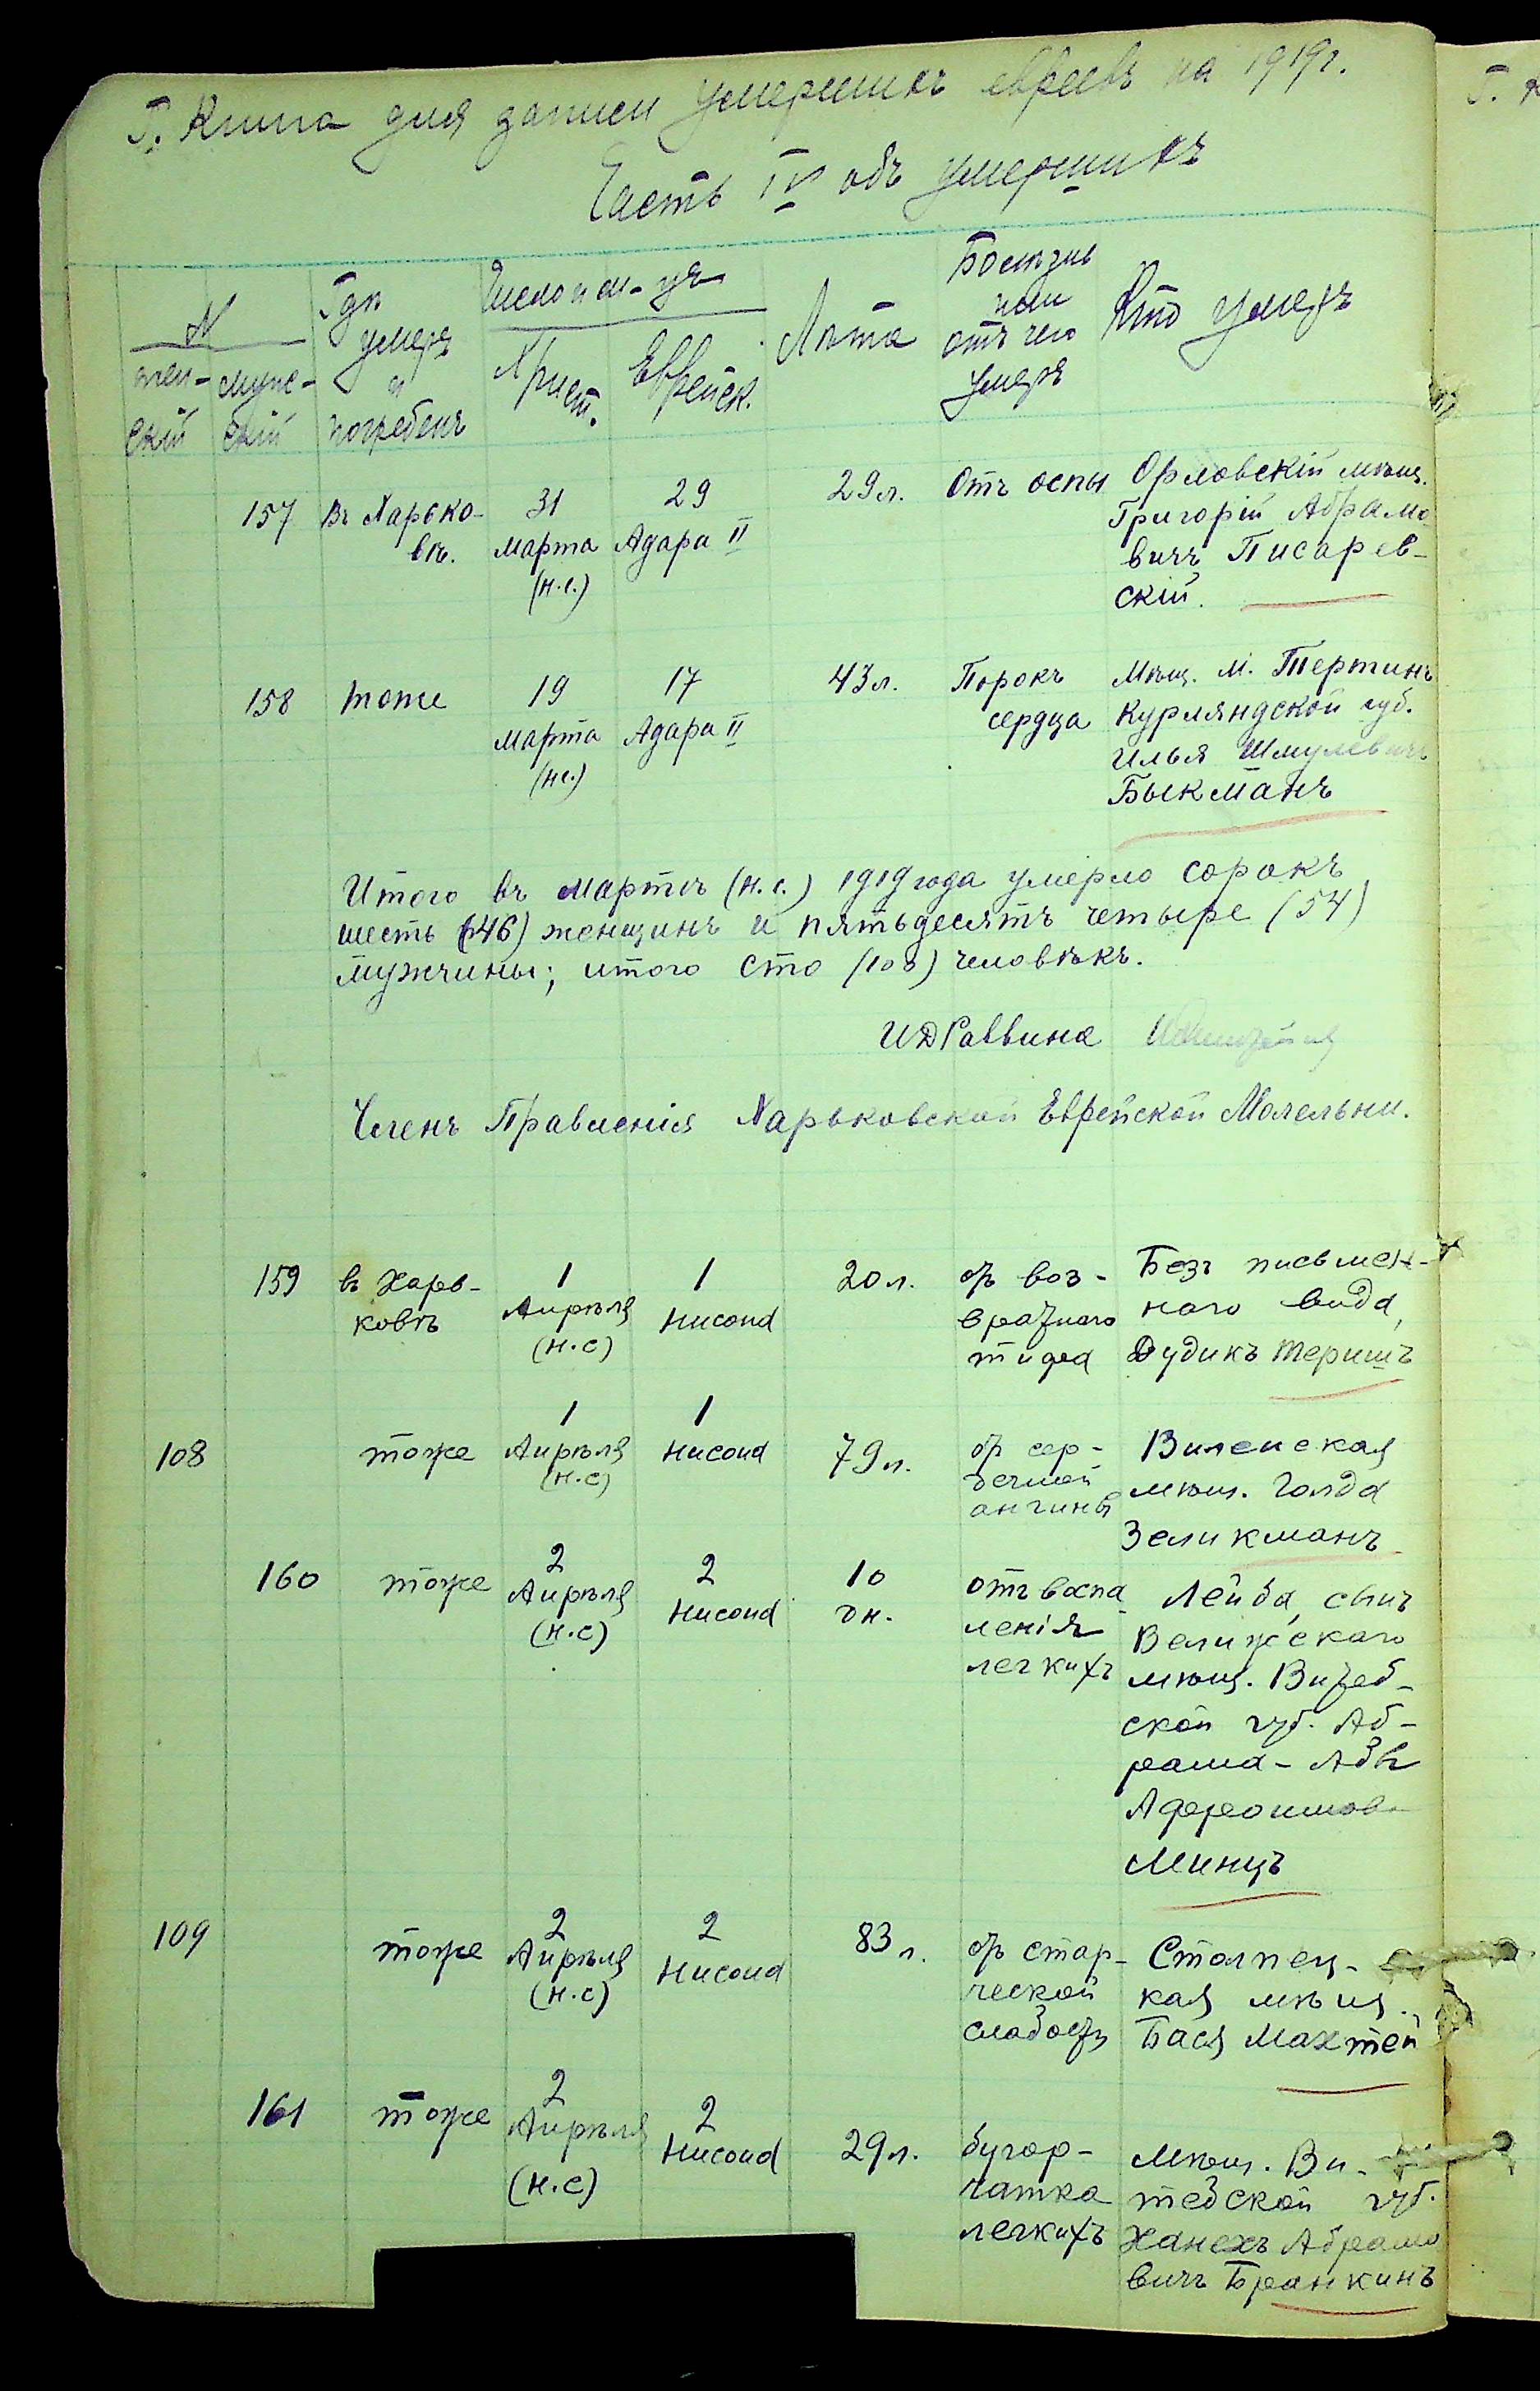 Г. Книга для записи умершихъ евреевъ на 1919г.
Часть IV объ умершихъ
N
жен-
скій
муж-
скій
Гдѣ
умеръ
и
погребенъ
Число и м-цъ
Христ.
Еврейск.
Лѣта
Болѣзнь
или
отъ чего
умеръ
Кто умеръ
157
Въ Харько-
вѣ.
31
марта
(н.с.)
29
Адара II
29 л.
Отъ оспы
Орловскій мѣщ.
Григорій Абрамо
вичъ Писарев-
скій.
158
тоже
19
марта
(нс.)
17
Адара II
43 л.
Порокъ
сердца
Мѣщ. м. Тертинъ
Курляндской губ.
Илья Шмулевичъ
Быкманъ
Итого въ мартѣ (н.с.) 1919 года умерло сорокъ
шесть (46) женщинъ и пятьдесятъ четыре (54)
мужчины; итого сто (100) человѣкъ.
ИД Раввина
Членъ Правленія Харьковской Еврейской Молельни.
159
въ Харь-
ковѣ
1
Апрѣля
(н.с)
1
Нисона
20 л.
отъ воз-
вратнаго
тифа
Безъ письмен-
наго вида,
Дудикъ Теришъ
108
тоже
1
Апрѣля
(н.с)
1
Нисона
79 л.
отъ сер-
дечной
ангины
Виленская
мѣщ. Голда
Зеликманъ
160
тоже
2
Апрѣля
(н.с)
2
Нисона
10
дн.
отъ воспа
ленія
легкихъ
Лейба, сынъ
Велижскаго
мѣщ. Витеб-
ской губ. Аб-
рама-Абы
Афроимов.
Минцъ
109
тоже
2
Апрѣля
(н.с)
2
Нисона
83 л.
отъ стар-
ческой
слабости
Столпец-
кая мѣщ.
Бася Махтей
161
тоже
2
Апрѣля
(н.с)
2
Нисона
29 л.
бугор-
чатка
легкихъ
Мѣщ. Ви-
тебской губ.
Ханехъ Абрамо
вичъ Бранкинъ